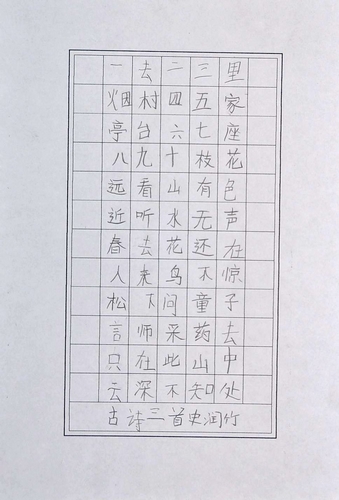 一去二三里
烟村四五家
亭台六七座
八九十枝花
远看山有色
近听水无声
春去花还在
人来鸟不惊
松下问童子
言师采药去
只在此山中
云深不知处
古诗三首史润竹